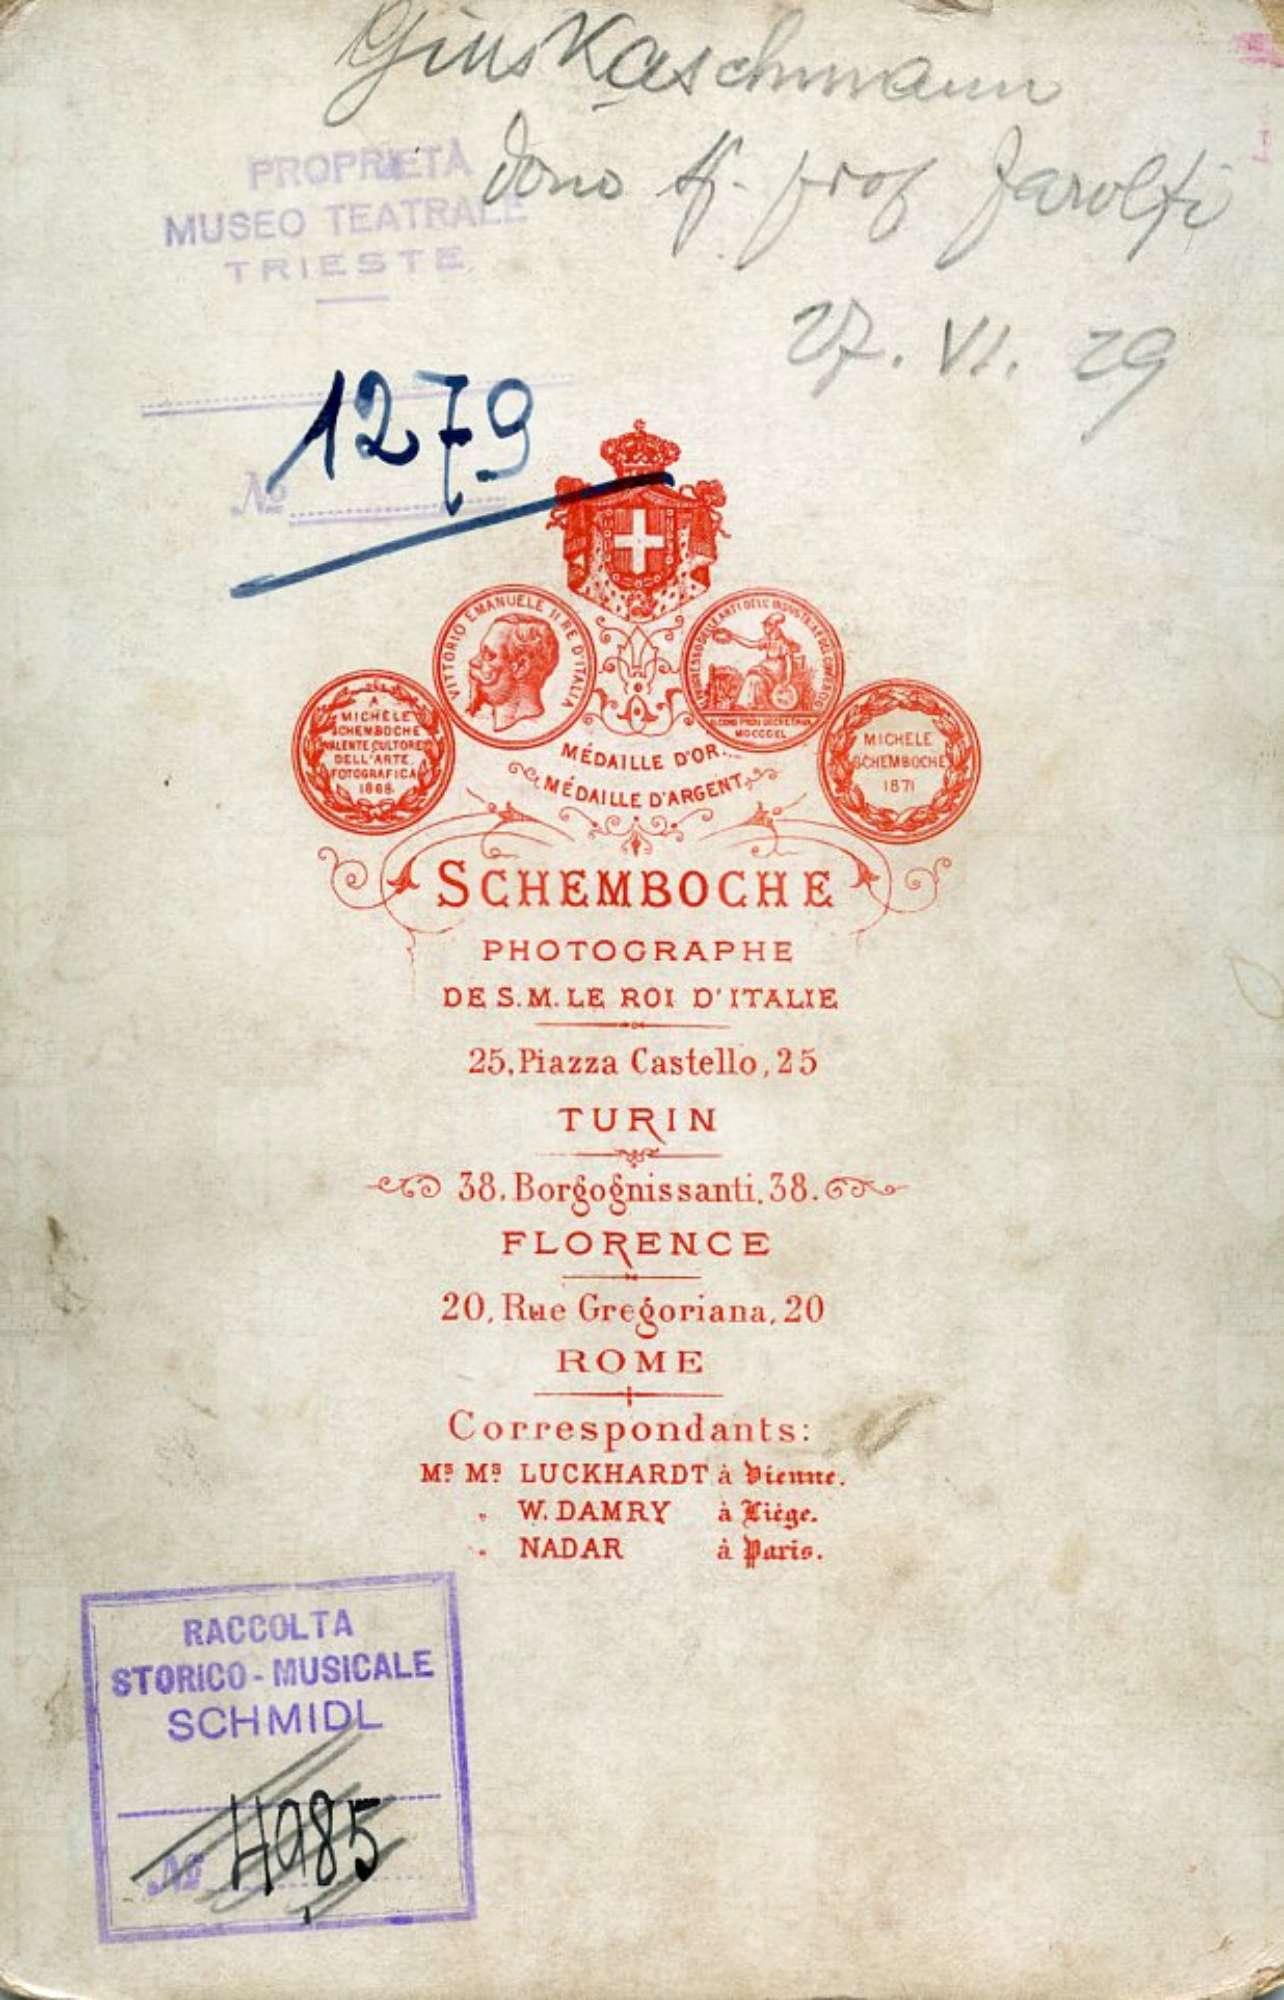 Gius Kaschmann
dono
prof
27. VI. 29
PROPRIETÀ
MUSEO TEATRALE
TRIESTE
No 1279
VITTORIO EMANUELE II RE D'ITALIA
A
MICHELE
SCHEMBOCHE
VALENTE CULTORE
DELL'ARTE
FOTOGRAFICA
1868
MICHELE
SCHEMBOCHE
1871
MÉDAILLE D'OR
MÉDAILLE D'ARGENT
SCHEMBOCHE
PHOTOGRAPHE
DE S.M. LE ROI D'ITALIE
25, Piazza Castello, 25
TURIN
38. Borgognissanti. 38.
FLORENCE
20, Rue Gregoriana, 20
ROME
Correspondants:
Ms Ms LUCKHARDT à Vienne.
" W. DAMRY à Liége.
" NADAR à Paris.
RACCOLTA
STORICO-MUSICALE
SCHMIDL
No 4985